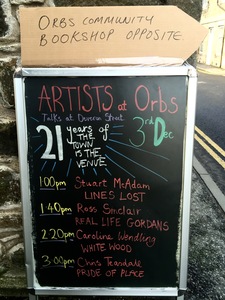 ORBS COMMUNITY
BOOKSHOP OPPOSITE
ARTISTS at Orbs
Talks at Duverin Street
21 years of
THE
TOWN
IS THE
VENUE
3rd
Dec
1:00pm Stuart McAdam
LINES LOST
1:40pm Ross Sinclair
REAL LIFE GORDANS
2:20pm Caroline Wendling
WHITE WOOD
3:00pm Chris Teasdale
PRIDE OF PLACE